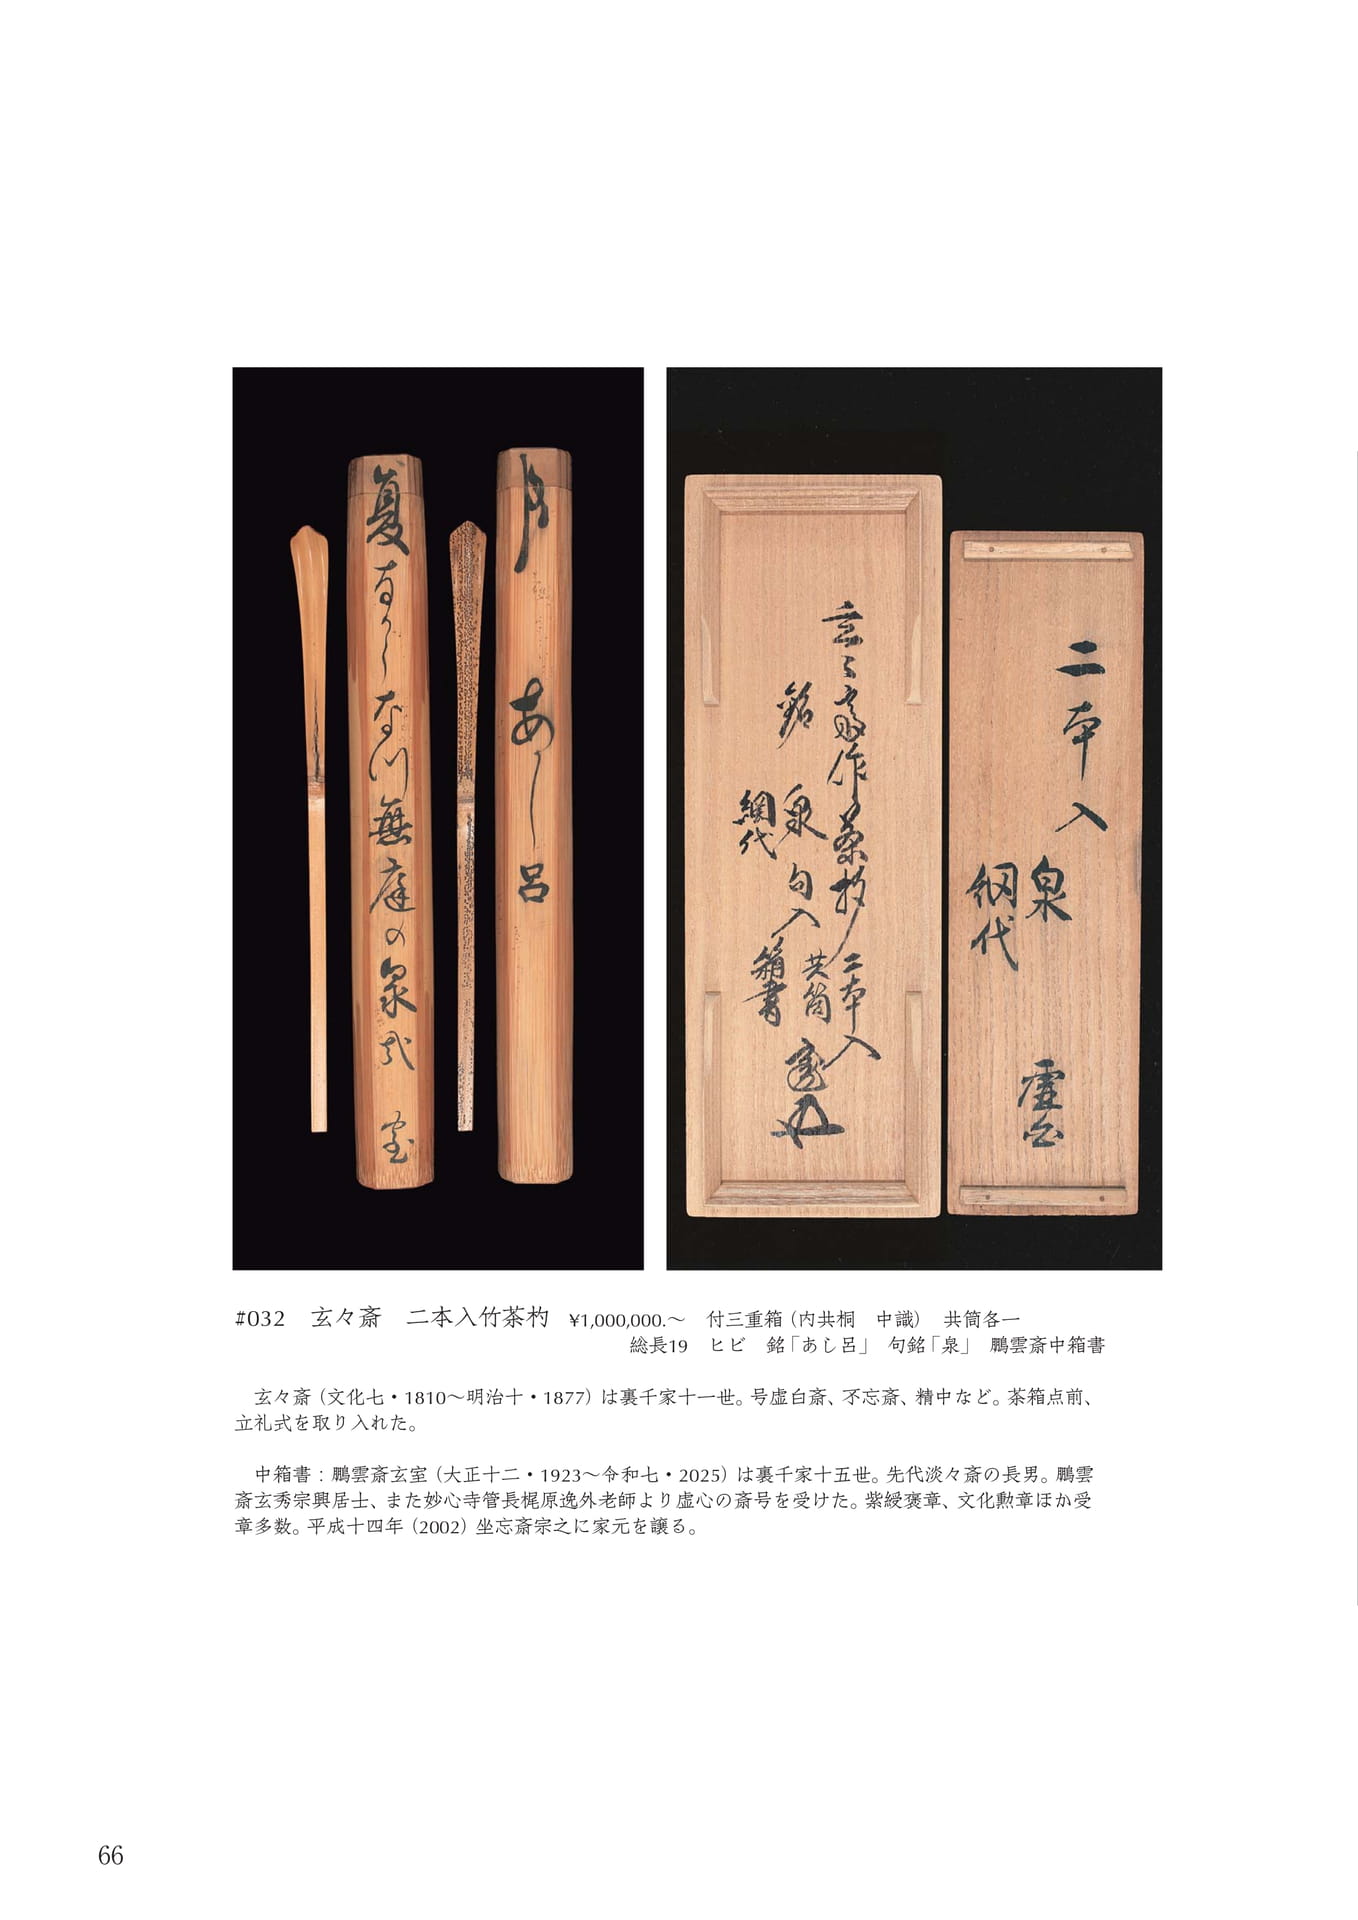 夏
無庭の泉
室
あし呂
玄々斎作茶杓 二本入
銘 泉 句入 共筒
網代 箱書
二本入
泉
網代
#032　玄々斎　二本入竹茶杓　¥1,000,000.～　付三重箱（内共桐　中識）　共筒各一
総長19　ヒビ　銘「あし呂」　句銘「泉」　鵬雲斎中箱書
玄々斎（文化七・1810～明治十・1877）は裏千家十一世。号虚白斎、不忘斎、精中など。茶箱点前、
立礼式を取り入れた。
中箱書：鵬雲斎玄室（大正十二・1923～令和七・2025）は裏千家十五世。先代淡々斎の長男。鵬雲
斎玄秀宗興居士、また妙心寺管長梶原逸外老師より虚心の斎号を受けた。紫綬褒章、文化勲章ほか受
章多数。平成十四年（2002）坐忘斎宗之に家元を譲る。
66